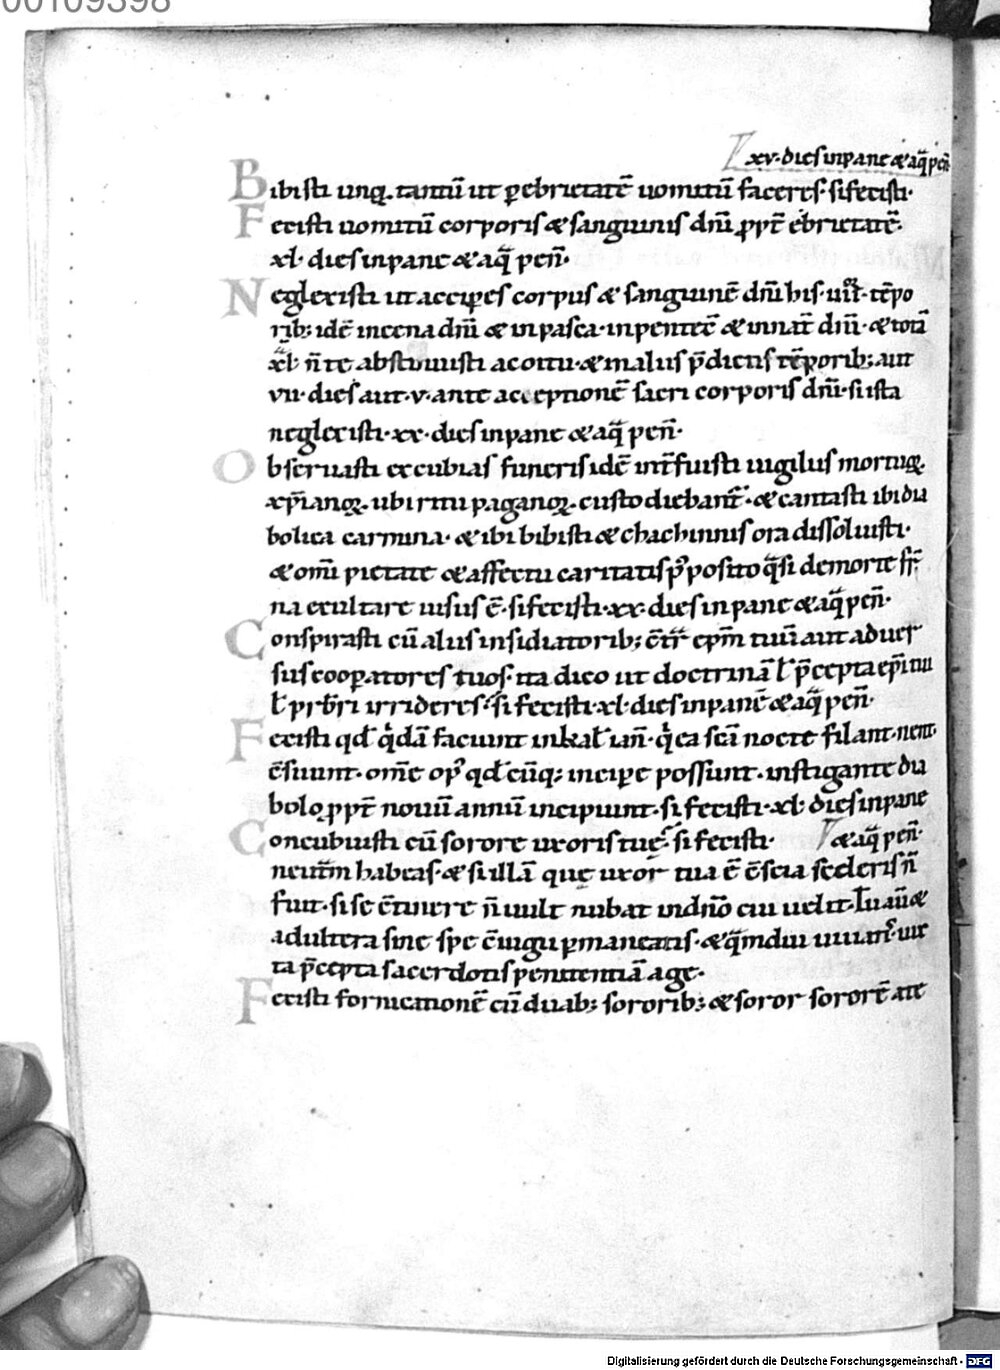 00109398
xv· dies in pane & aq̄ pēn
Bibisti unq̄. tantū ut p̱ ebrietatē uomitū faceres· si fecisti·
Fecisti uomitū corporis & sanguinis dn̄i p̱pt̄ ebrietatē·
xl· dies in pane & aq̄ pen̄·
Neglexisti ut acciperes corpus & sanguinē dn̄i his· iiii· tēpo
rib; idē in cena dn̄i & in pasca· in pentec̄ & in nat̄ dn̄i· & totā
xl· n̄ te abstinuisti a coitu· & in aliis p̄dictis tēporib; aut
vii· dies aut· v· ante acceptionē sacri corporis dn̄i· si ista
neglexisti· xx· dies in pane & aq̄ pen̄·
Obseruasti excubias funeris idē int̄fuisti uigiliis mortuoꝝ
xp̄ianoꝝ· ubi ritu paganoꝝ· custodiebant̄· & cantasti ibi dia
bolica carmina· & ibi bibisti & chachinnis ora dissoluisti·
& om̄i pietate & affectu caritatis p̄posito q̄si de morte fr̄
na exultare uisus ē· si fecisti· xx· dies in pane & aq̄ pen̄·
Conspirasti cū aliis insidiatorib; c̄tr̄ ep̄m tuū aut aduer
sus cooperatores tuos· ita dico ut doctrinā l̄ p̄cepta ep̄i tui
l̄ prb̄ri irrideres· si fecisti· xl· dies in pane & aq̄ pen̄·
Fecisti qd̄ q̄dā faciunt in kal̄ ian̄· q̄ ea sc̄a nocte filant· nent·
c̄suunt· om̄e op̄ qd̄cūq; incipe possunt· instigante dia
bolo ppt̄ nouū annū incipiunt· si fecisti· xl· dies in pane
& aq̄ pen̄·
Concubuisti cū sorore uxoris tuę· si fecisti·
neut̄m habeas· & si illā quę uxor tua ē c̄scia sceleris n̄
fuit· si se c̄tinere n̄ uult nubat in dn̄o cui uelit· Tu aū &
adultera sine spe c̄iugii p̱maneatis· & q̄mdiu uiuatis· iux
ta p̄cepta sacerdotis penitentiā age·
Fecisti fornicationē cū duab; sororib; & soror sororē ate
Digitalisierung gefördert durch die Deutsche Forschungsgemeinschaft - DFG